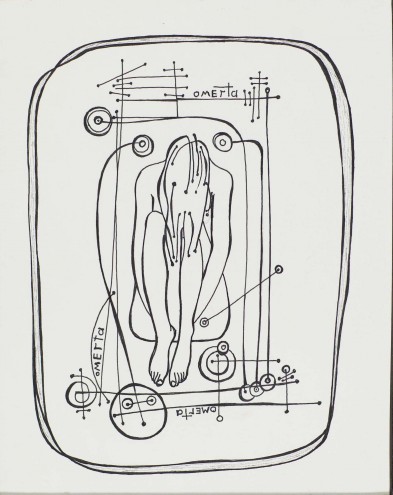 OMERTA
OMERTA
OMERTA